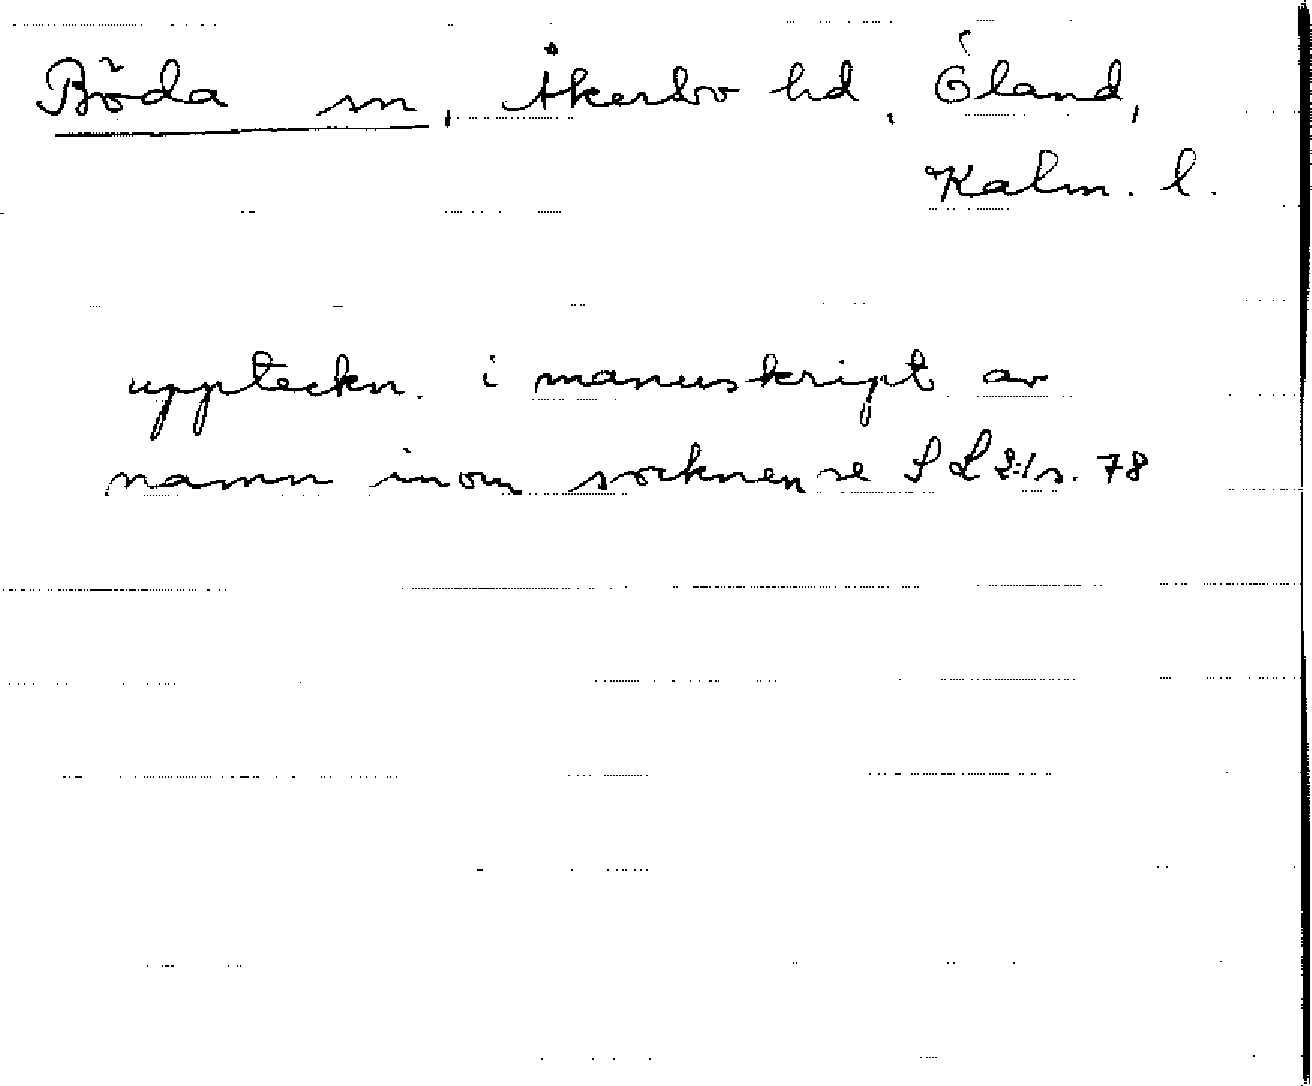 Böda sn, Åkerbo hd, Öland,
Kalm. l.
uppteckn. i manuskript av
namn inom socknen se SL 2:1 s. 78